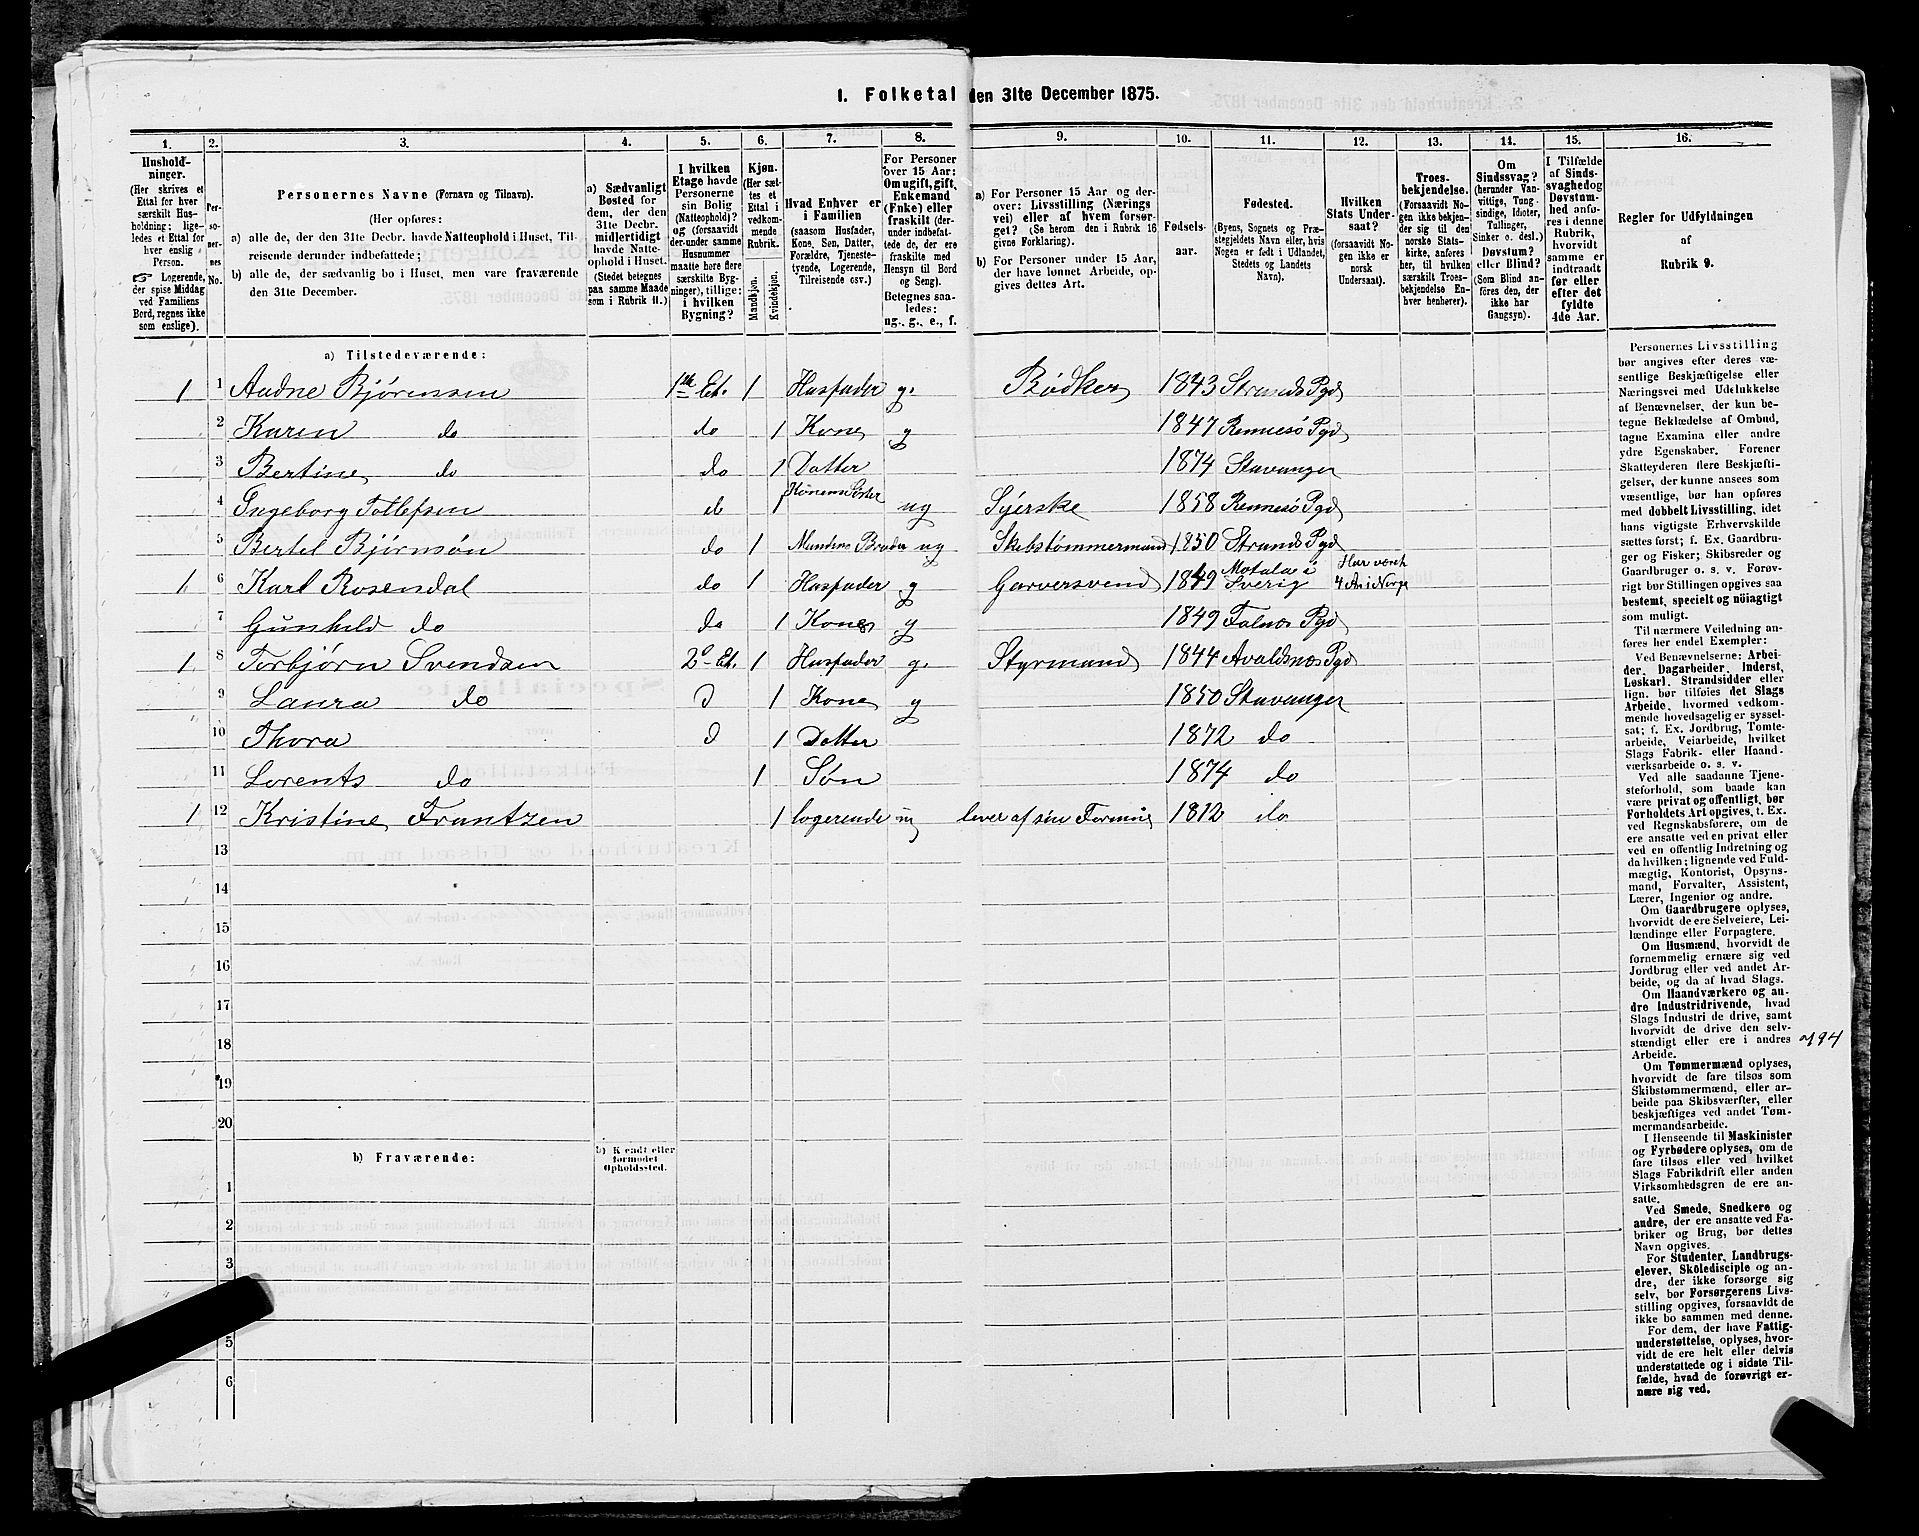 1. Folketal den 31te December 1875.
1. 2. 3. 4. 5. 6. 7. 8. 9. 10. 11. 12. 13. 14. 15. 16.
Hushold-
ninger.
(Her skrives et
Ettal for hver
særskilt Hus-
holdning; lige-
ledes et Ettal for
hver enslig
Person.
☞ Logerende,
der spise Middag
ved Familiens
Bord, regnes ikke
som enslige).
Per-
so-
ner-
nes
No.
Personernes Navne (Fornavn og Tilnavn).
(Her opføres:
a) alle de, der den 31te Decbr. havde Natteophold i Huset, Til-
reisende derunder indbefattede;
b) alle de, der sædvanlig bo i Huset, men vare fraværende
den 31te December.
a) Sædvanligt
Bosted for
dem, der den
31te Decbr.
midlertidigt
havde Natte-
ophold i Huset.
(Stedet betegnes
paa samme Maade
som i Rubrik 11.)
I hvilken
Etage havde
Personerne
sin Bolig
(Natteophold)?
og (forsaavidt
der under samme
Husnummer
maatte høre flere
særskilte Byg-
ninger), tillige:
i hvilken
Bygning?
Kjøn.
(Her sæt-
tes et
Ettal i
vedkom-
mende
Rubrik.
Mandkjøn.
Kvindekjøn.
Hvad Enhver er
i Familien
(saasom Husfader,
Kone, Søn, Datter,
Forældre, Tjeneste-
tyende, Logerende,
Tilreisende osv.)
For Personer
over 15 Aar:
Om ugift, gift,
Enkemand
(Enke) eller
fraskilt (der-
under indbefat-
tede de, der ere
fraskilte med
Hensyn til Bord
og Seng).
Betegnes saa-
ledes:
ug., g., e., f.
a) For Personer 15 Aar og der-
over: Livsstilling (Nærings
vei) eller af hvem forsør-
get? (Se herom den i Rubrik 16
givne Forklaring).
b) For Personer under 15 Aar,
der have lønnet Arbeide, op-
gives dettes Art.
Fødsels-
aar.
Fødested.
(Byens, Sognets og Præ-
stegjeldets Navn eller, hvis
Nogen er født i Udlandet,
Stedets og Landets
Navn).
Hvilken
Stats Under-
saat?
(forsaavidt No-
gen ikke er
norsk
Undersaat).
Troes-
bekjendelse.
(Forsaavidt No-
gen ikke bekjen-
der sig til den
norske Stats-
kirke, anføres
her, til hvilken
særskilt Troes-
bekjendelse En-
hver henhører).
Om
Sindssvag?
(herunder Van-
vittige, Tung-
sindige, Idioter,
Tullinger,
Sinker o. desl.)
Døvstum?
eller Blind?
(Som Blind an-
føres den, der
ikke har
Gangsyn).
I Tilfælde
af Sinds-
svaghed og
Døvstum-
hed anfø-
res i denne
Rubrik,
hvorvidt
samme er
indtraadt
før eller
efter det
fyldte
4de Aar.
Regler for Udfyldningen
af
Rubrik 9.
a) Tilstedeværende:
1 1 Audne Bjørensen 1ste Et. 1 Husfader g. Bødker 1843 Strands Pgd
2 Karen do do 1 Kone g 1847 Rennesø Pgd
3 Bertine do do 1 Datter 1874 Stavanger
4 Ingeborg Tollefsen d 1 Konens Søster ug Syerske 1858 Rennesø Pgd
5 Bertel Bjørnsøn do 1 Mandens Broder ug Skibstømmermand 1850 Strands Pgd
1 6 Karl Rosendal do 1 Husfader g Garversvend 1849 Motala i Sverig Har været 4 Aar i Norge
7 Gunhild do do 1 Kone g 1849 Falnes Pgd
1 8 Torbjørn Svendsen 2d Et. 1 Husfader g. Styrmand 1844 Avaldsnes Pgd
9 Laura do D 1 Kone g 1850 Stavanger
10 Thora D 1 Datter 1872 do
11 Lorents do 1 Søn 1874 do
1 12 Kristine Frantzen 1 logerende ug lever af sin Formue 1812 do
13
14
15
16
17
18
19
20
b) Fraværende:
b) Kjendt eller
formodet
Opholdssted.
1
2
3
5
6
Personernes Livsstilling
bør angives efter deres væ-
sentlige Beskjæftigelse eller
Næringsvei med Udelukkelse
af Benævnelser, der kun be-
tegne Beklædelse af Ombud,
tagne Examina eller andre
ydre Egenskaber. Forener
Skatteyderen flere Beskjæfti-
gelser, der kunne ansees som
væsentlige, bør han opføres
med dobbelt Livsstilling, idet
hans vigtigste Erhvervskilde
sættes først; f. Ex. Gaardbru-
ger og Fisker; Skibsreder og
Gaardbruger o. s. v. Forøv-
rigt bør Stillingen opgives saa
bestemt, specielt og nøiagtigt
som muligt.
Til nærmere Veiledning an-
føres her endel Exempler:
Ved Benævnelserne: Arbei-
der, Dagarbeider, Inderst,
Løskarl, Strandsidder eller
lign. bør tilføies det Slags
Arbeide, hvormed vedkom-
mende hovedsagelig er syssel-
sat; f. Ex. Jordbrug, Tomte-
arbeide, Veiarbeide, hvilket
Slags Fabrik- eller Haand-
værksarbeide o. s. v.
Ved alle saadanne Tjene-
steforhold, som baade kan
være privat og offentligt, bør
Forholdets Art opgives, t. Ex.
ved Regnskabsførere, om de
ere ansatte ved en privat eller
ved en offentlig Indretning og
da hvilken; lignende ved Fuld-
mægtig, Kontorist, Opsyns-
mand, Forvalter, Assistent,
Lærer, Ingeniør og andre.
Om Gaardbrugere oplyses,
hvorvidt de ere Selveiere, Lei-
lændinge eller Forpagtere.
Om Husmænd, hvorvidt de
fornemmelig ernære sig ved
Jordbrug eller ved andet Ar-
beide, og da af hvad Slags.
Om Haandværkere og an-
dre Industridrivende, hvad
Slags Industri de drive, samt
hvorvidt de drive den selv-
stændigt eller ere i andres
Arbeide.
Om Tømmermænd oplyses,
hvorvidt de fare tilsøs som
Skibstømmermænd, eller ar-
beide paa Skibsværfter, eller
beskjæftiges ved andet Tøm-
mermandsarbeide.
I Henseende til Maskinister
og Fyrbødere oplyses, om de
fare tilsøs eller ved hvilket
Slags Fabrikdrift eller anden
Virksomhedsgren de ere an-
satte.
Ved Smede, Snedkere og
andre, der ere ansatte ved Fa-
briker og Brug, bør dettes
Navn opgives.
For Studenter, Landbrugs-
elever, Skoledisciple og an-
dre, der ikke forsørge sig
selv, bør Forsørgerens Livs-
stilling opgives, forsaavidt de
ikke bo sammen med denne.
For dem, der have Fattig-
understøttelse, oplyses, hvor-
vidt de ere helt eller delvis
understøttede og i sidste Til-
fælde, hvad de forøvrigt er-
nære sig ved.